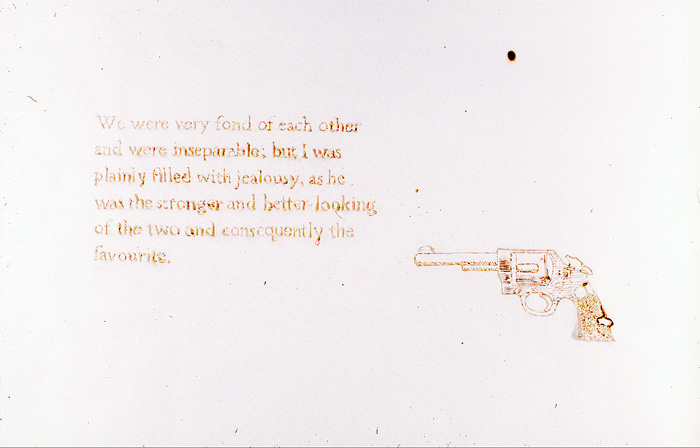 We were very fond of each other
and were inseparable; but I was
plainly filled with jealousy, as he
was the stronger and better-looking
of the two and consequently the
favourite.